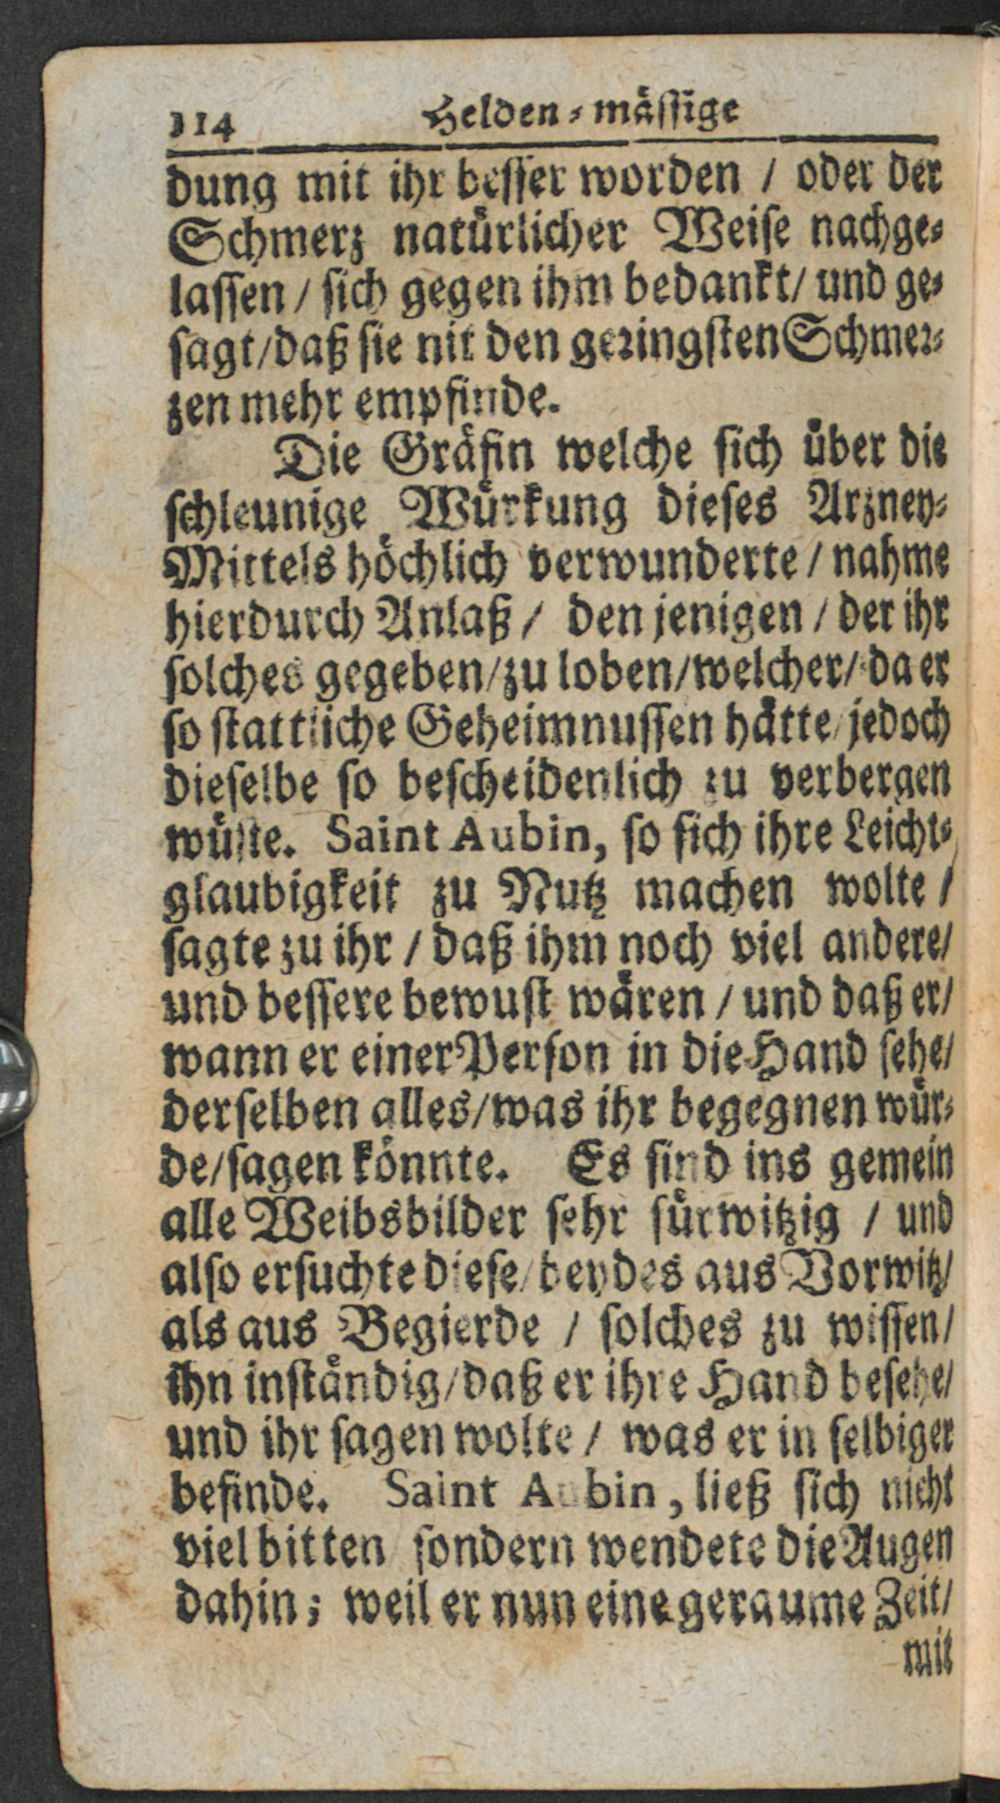 114 Helden-mässige
dung mit ihr besser worden / oder der
Schmerz natürlicher Weise nachge-
lassen / sich gegen ihm bedankt / und ge-
sagt / daß sie nit den geringsten Schmer-
zen mehr empfinde.
Die Gräfin welche sich über die
schleunige Würkung dieses Arzney-
Mittels höchlich verwunderte / nahme
hierdurch Anlaß / den jenigen / der ihr
solches gegeben / zu loben / welcher / da er
so stattliche Geheimnussen hätte / jedoch
dieselbe so bescheidenlich zu verbergen
wüste. Saint Aubin, so sich ihre Leicht-
glaubigkeit zu Nutz machen wolte /
sagte zu ihr / daß ihm noch viel andere /
und bessere bewust wären / und daß er /
wann er einer Person in die Hand sehe /
derselben alles / was ihr begegnen wür-
de / sagen könnte. Es sind ins gemein
alle Weibsbilder sehr fürwitzig / und
also ersuchte diese / beydes aus Vorwitz /
als aus Begierde / solches zu wissen /
ihn inständig / daß er ihre Hand besehe /
und ihr sagen wolte / was er in selbiger
befinde. Saint Aubin, ließ sich nicht
viel bitten / sondern wendete die Augen
dahin; weil er nun eine geraume Zeit /
mit